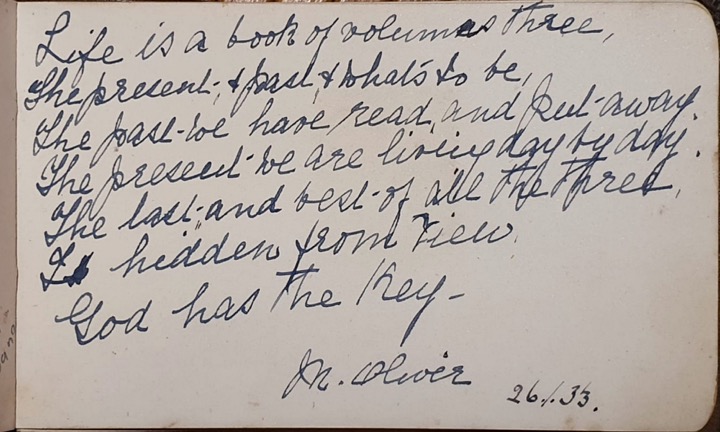 Life is a book of volumes three,
The present, & past, & what's to be,
The past we have read, and put away.
The present we are living day by day.
The last, and best of all the three,
Is hidden from view,
God has the Key -
M. Oliver
26.1.33.